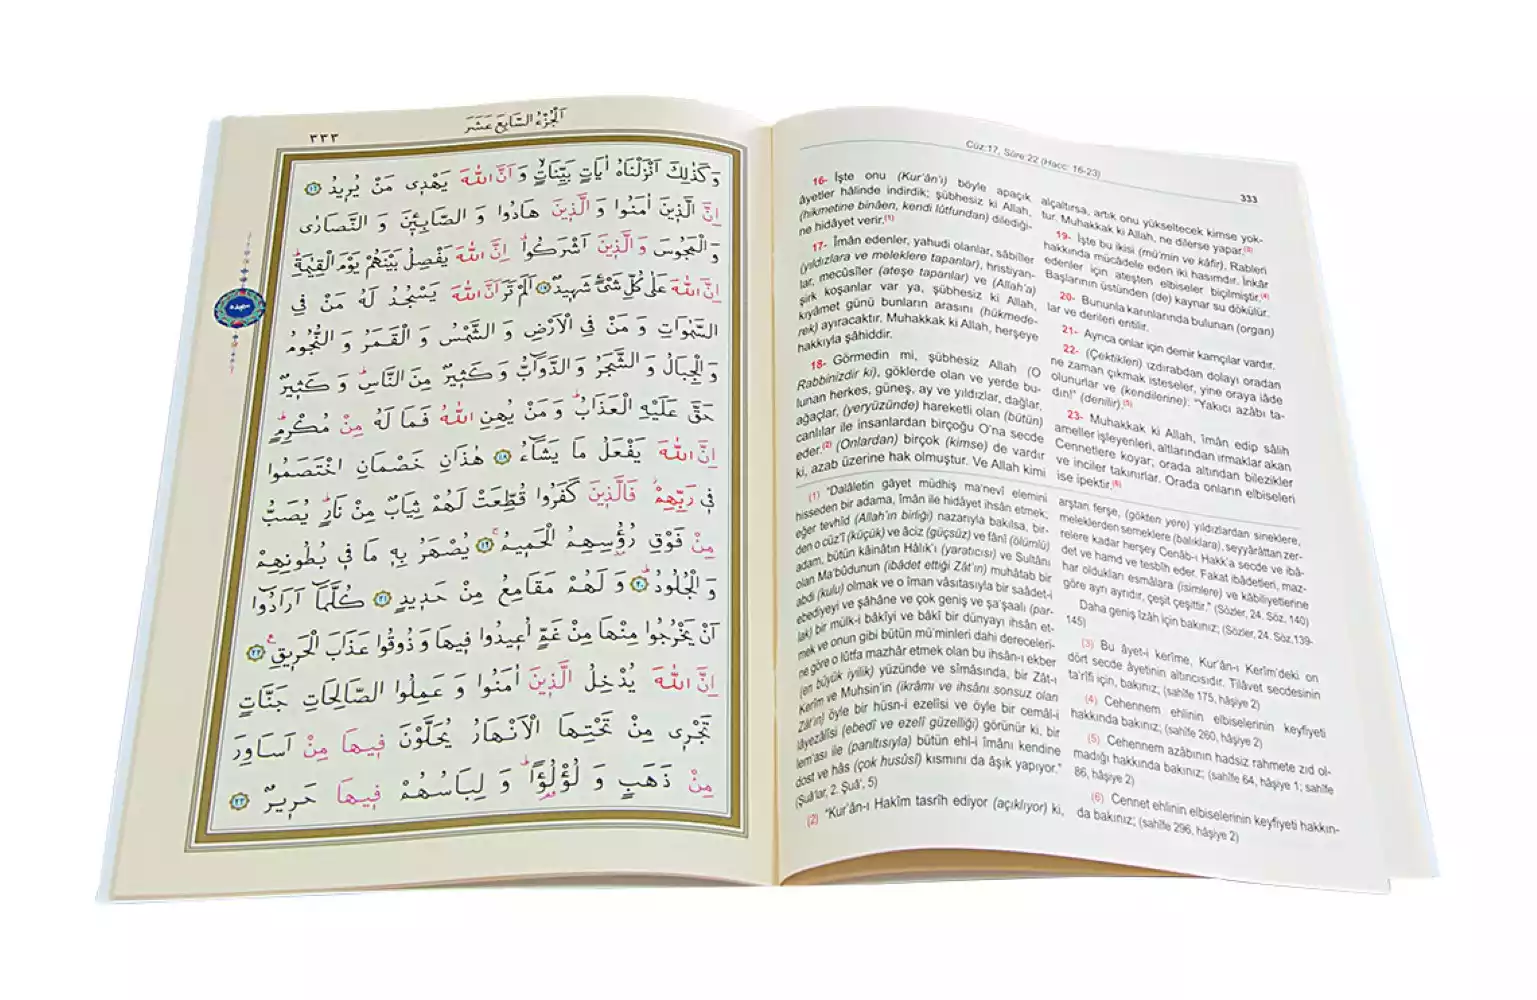 ٣٣٣
اَلْجُزْءُ السَّابِعَ عَشَرَ
وَكَذٰلِكَ اَنْزَلْنَاهُ اٰيَاتٍ بَيِّنَاتٍۙ وَاَنَّ اللّٰهَ يَهْدٖى مَنْ يُرٖيدُ ﴿١٦﴾
اِنَّ الَّذٖينَ اٰمَنُوا وَ الَّذٖينَ هَادُوا وَ الصَّابِـٖٔينَ وَ النَّصَارٰى
وَ الْمَجُوسَ وَ الَّذٖينَ اَشْرَكُوا اِنَّ اللّٰهَ يَفْصِلُ بَيْنَهُمْ يَوْمَ الْقِيٰمَةِ
اِنَّ اللّٰهَ عَلٰى كُلِّ شَىْءٍ شَهٖيدٌ ﴿١٧﴾ اَلَمْ تَرَ اَنَّ اللّٰهَ يَسْجُدُ لَهُ مَنْ فِى
سجده
السَّمٰوَاتِ وَ مَنْ فِى الْاَرْضِ وَ الشَّمْسُ وَ الْقَمَرُ وَ النُّجُومُ
وَ الْجِبَالُ وَ الشَّجَرُ وَ الدَّوَٓابُّ وَ كَثٖيرٌ مِنَ النَّاسِ وَ كَثٖيرٌ
حَقَّ عَلَيْهِ الْعَذَابُ وَ مَنْ يُهِنِ اللّٰهُ فَمَا لَهُ مِنْ مُكْرِمٍ
اِنَّ اللّٰهَ يَفْعَلُ مَا يَشَٓاءُ ﴿١٨﴾ هٰذَانِ خَصْمَانِ اخْتَصَمُوا
فٖى رَبِّهِمْ فَالَّذٖينَ كَفَرُوا قُطِّعَتْ لَهُمْ ثِيَابٌ مِنْ نَارٍ يُصَبُّ
مِنْ فَوْقِ رُؤُسِهِمُ الْحَمٖيمُ ﴿١٩﴾ يُصْهَرُ بِهٖ مَا فٖى بُطُونِهِمْ
وَ الْجُلُودُ ﴿٢٠﴾ وَ لَهُمْ مَقَامِعُ مِنْ حَدٖيدٍ ﴿٢١﴾ كُلَّمَٓا اَرَادُٓوا
اَنْ يَخْرُجُوا مِنْهَا مِنْ غَمٍّ اُعٖيدُوا فٖيهَا وَ ذُوقُوا عَذَابَ الْحَرٖيقِ ﴿٢٢﴾
اِنَّ اللّٰهَ يُدْخِلُ الَّذٖينَ اٰمَنُوا وَ عَمِلُوا الصَّالِحَاتِ جَنَّاتٍ
تَجْرٖى مِنْ تَحْتِهَا الْاَنْهَارُ يُحَلَّوْنَ فٖيهَا مِنْ اَسَاوِرَ
مِنْ ذَهَبٍ وَ لُؤْلُؤًا وَ لِبَاسُهُمْ فٖيهَا حَرٖيرٌ ﴿٢٣﴾
Cüz:17, Sûre:22 (Hacc: 16-23)
333
16- İşte onu (Kur'ân'ı) böyle apaçık
âyetler hâlinde indirdik; şübhesiz ki Allah,
(hikmetine binâen, kendi lütfundan) dilediği-
ne hidâyet verir.(1)
17- Îmân edenler, yahudi olanlar, sâbiîler
(yıldızlara ve meleklere tapanlar), hristiyan-
lar, mecûsîler (ateşe tapanlar) ve (Allah'a)
şirk koşanlar var ya, şübhesiz ki Allah,
kıyâmet günü bunların arasını (hükmede-
rek) ayıracaktır. Muhakkak ki Allah, herşeye
hakkıyla şâhiddir.
18- Görmedin mi, şübhesiz Allah (O
Rabbinizdir ki), göklerde olan ve yerde bu-
lunan herkes, güneş, ay ve yıldızlar, dağlar,
ağaçlar, (yeryüzünde) hareketli olan (bütün)
canlılar ile insanlardan birçoğu O'na secde
eder.(2) (Onlardan) birçok (kimse) de vardır
ki, azab üzerine hak olmuştur. Ve Allah kimi
alçaltırsa, artık onu yükseltecek kimse yok-
tur. Muhakkak ki Allah, ne dilerse yapar.(3)
19- İşte bu ikisi (mü'min ve kâfir), Rableri
hakkında mücâdele eden iki hasımdır. İnkâr
edenler için ateşten elbiseler biçilmiştir.(4)
Başlarının üstünden (de) kaynar su dökülür.
20- Bununla karınlarında bulunan (organ)
lar ve derileri eritilir.
21- Ayrıca onlar için demir kamçılar vardır.
22- (Çektikleri) ızdırabdan dolayı oradan
ne zaman çıkmak isteseler, yine oraya iâde
olunurlar ve (kendilerine): "Yakıcı azâbı ta-
dın!" (denilir).(5)
23- Muhakkak ki Allah, îmân edip sâlih
ameller işleyenleri, altlarından ırmaklar akan
Cennetlere koyar; orada altından bilezikler
ve inciler takınırlar. Orada onların elbiseleri
ise ipektir.(6)
(1) "Dalâletin gâyet müdhiş ma'nevî elemini
hisseden bir adama, îmân ile hidâyet ihsân etmek;
eğer tevhîd (Allah'ın birliği) nazarıyla bakılsa, bir-
den o cüz'î (küçük) ve âciz (güçsüz) ve fânî (ölümlü)
adam, bütün kâinâtın Hâlık'ı (yaratıcısı) ve Sultânı
olan Ma'bûdunun (ibâdet ettiği Zât'ın) muhâtab bir
abdi (kulu) olmak ve o îman vâsıtasıyla bir saâdet-i
ebediyeyi ve şâhâne ve çok geniş ve şa'şaalı (par-
lak) bir mülk-i bâkîyi ve bâkî bir dünyayı ihsân et-
mek ve onun gibi bütün mü'minleri dahi dereceleri-
ne göre o lûtfa mazhâr etmek olan bu ihsân-ı ekber
(en büyük iyilik) yüzünde ve sîmâsında, bir Zât-ı
Kerîm ve Muhsin'in (ikrâmı ve ihsânı sonsuz olan
Zât'ın) öyle bir hüsn-i ezelîsi ve öyle bir cemâl-i
lâyezâlîsi (ebedî ve ezelî güzelliği) görünür ki, bir
lem'ası ile (parıltısıyla) bütün ehl-i îmânı kendine
dost ve hâs (çok husûsî) kısmını da âşık yapıyor."
(Şuâ'lar, 2. Şuâ', 5)
(2) "Kur'ân-ı Hakîm tasrîh ediyor (açıklıyor) ki,
arştan ferşe, (gökten yere) yıldızlardan sineklere,
meleklerden semeklere (balıklara), seyyârâttan zer-
relere kadar herşey Cenâb-ı Hakk'a secde ve ibâ-
det ve hamd ve tesbîh eder. Fakat ibâdetleri, maz-
har oldukları esmâlara (isimlere) ve kâbiliyetlerine
göre ayrı ayrıdır, çeşit çeşittir." (Sözler, 24. Söz, 140)
Daha geniş îzâh için bakınız; (Sözler, 24. Söz,139-
145)
(3) Bu âyet-i kerîme, Kur'ân-ı Kerîm'deki on
dört secde âyetinin altıncısıdır. Tilâvet secdesinin
ta'rîfi için, bakınız; (sahîfe 175, hâşiye 2)
(4) Cehennem ehlinin elbiselerinin keyfiyeti
hakkında bakınız; (sahîfe 260, hâşiye 2)
(5) Cehennem azâbının hadsiz rahmete zıd ol-
madığı hakkında bakınız; (sahîfe 64, hâşiye 1; sahîfe
86, hâşiye 2)
(6) Cennet ehlinin elbiselerinin keyfiyeti hakkın-
da bakınız; (sahîfe 296, hâşiye 2)